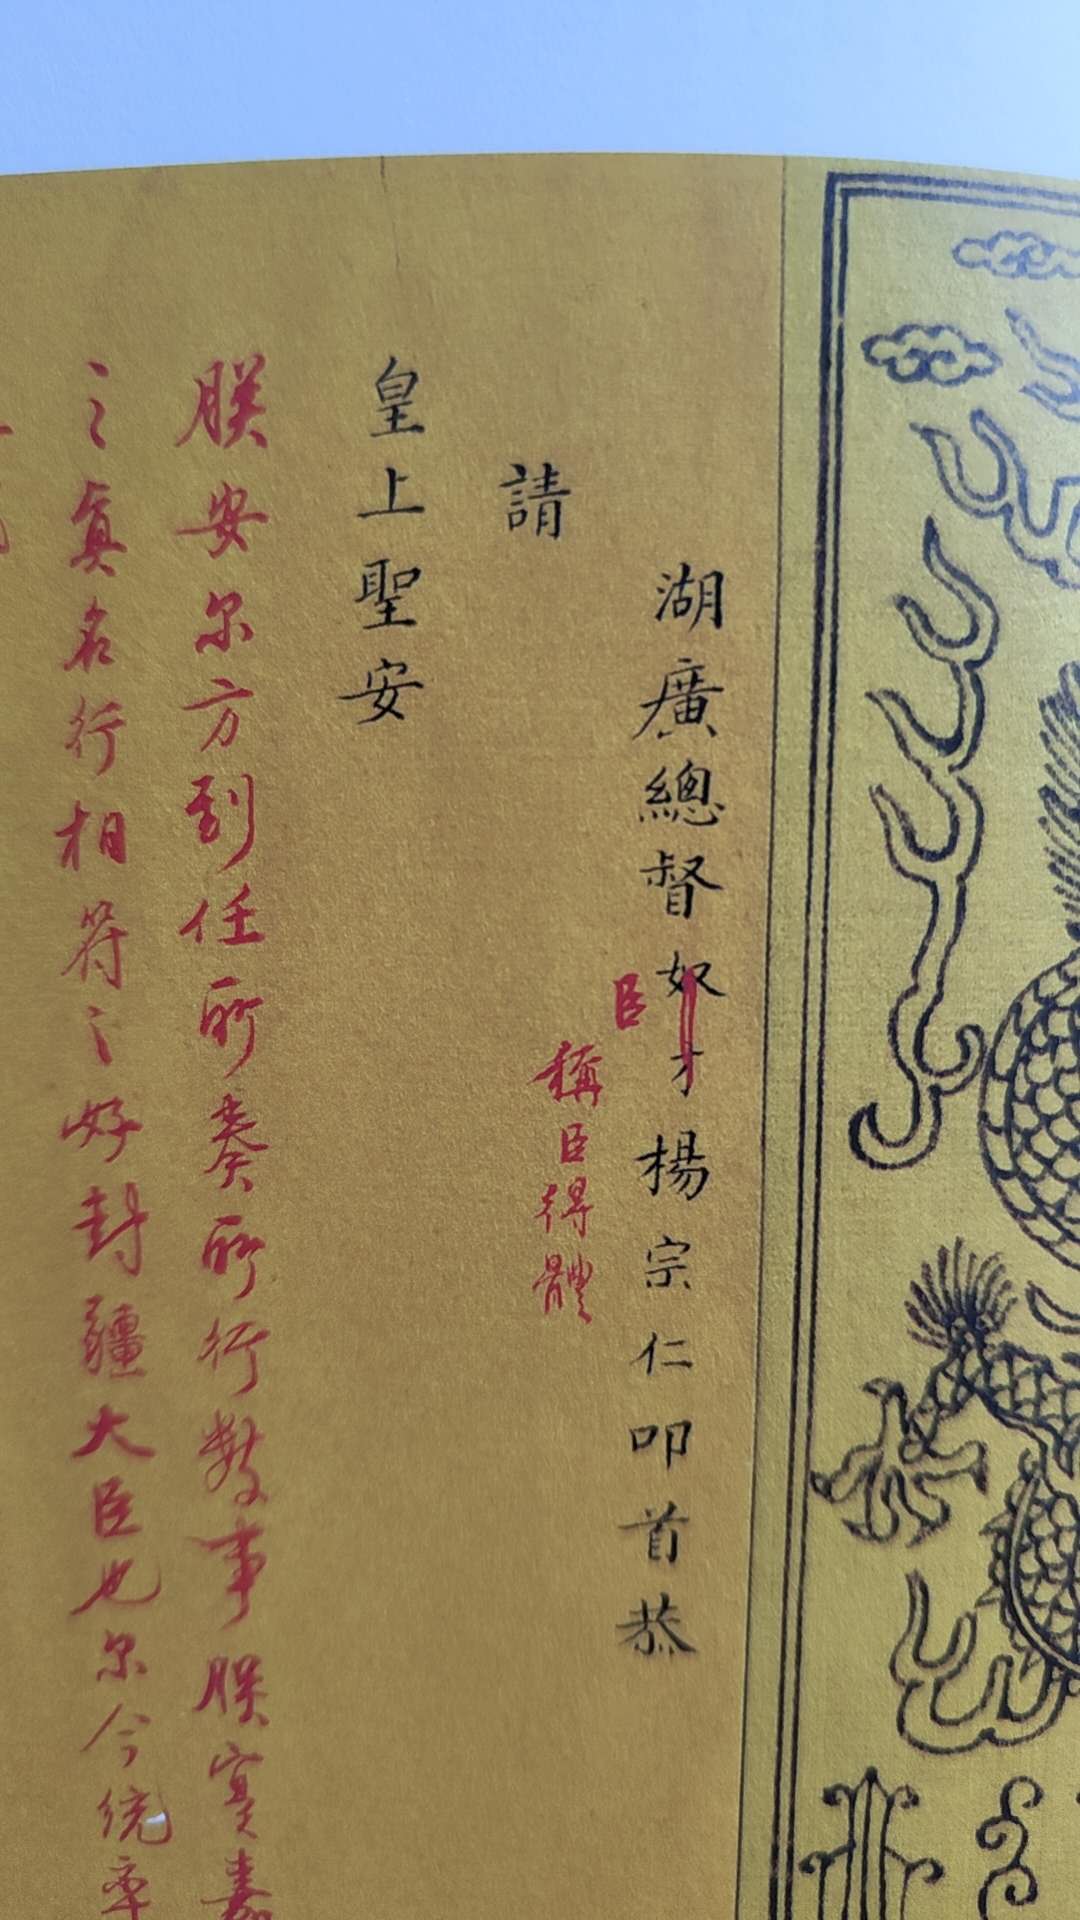 湖廣總督奴才楊宗仁叩首恭
臣
稱臣得體
請
皇上聖安
朕安尔方到任所奏所行數事朕實嘉
之真名行相符之好封疆大臣也尔今統率